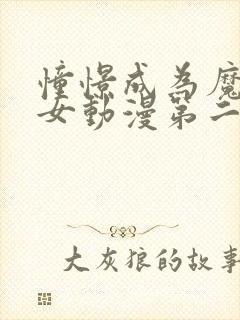 憧憬成為魔
女動漫第二
大灰狼的故事